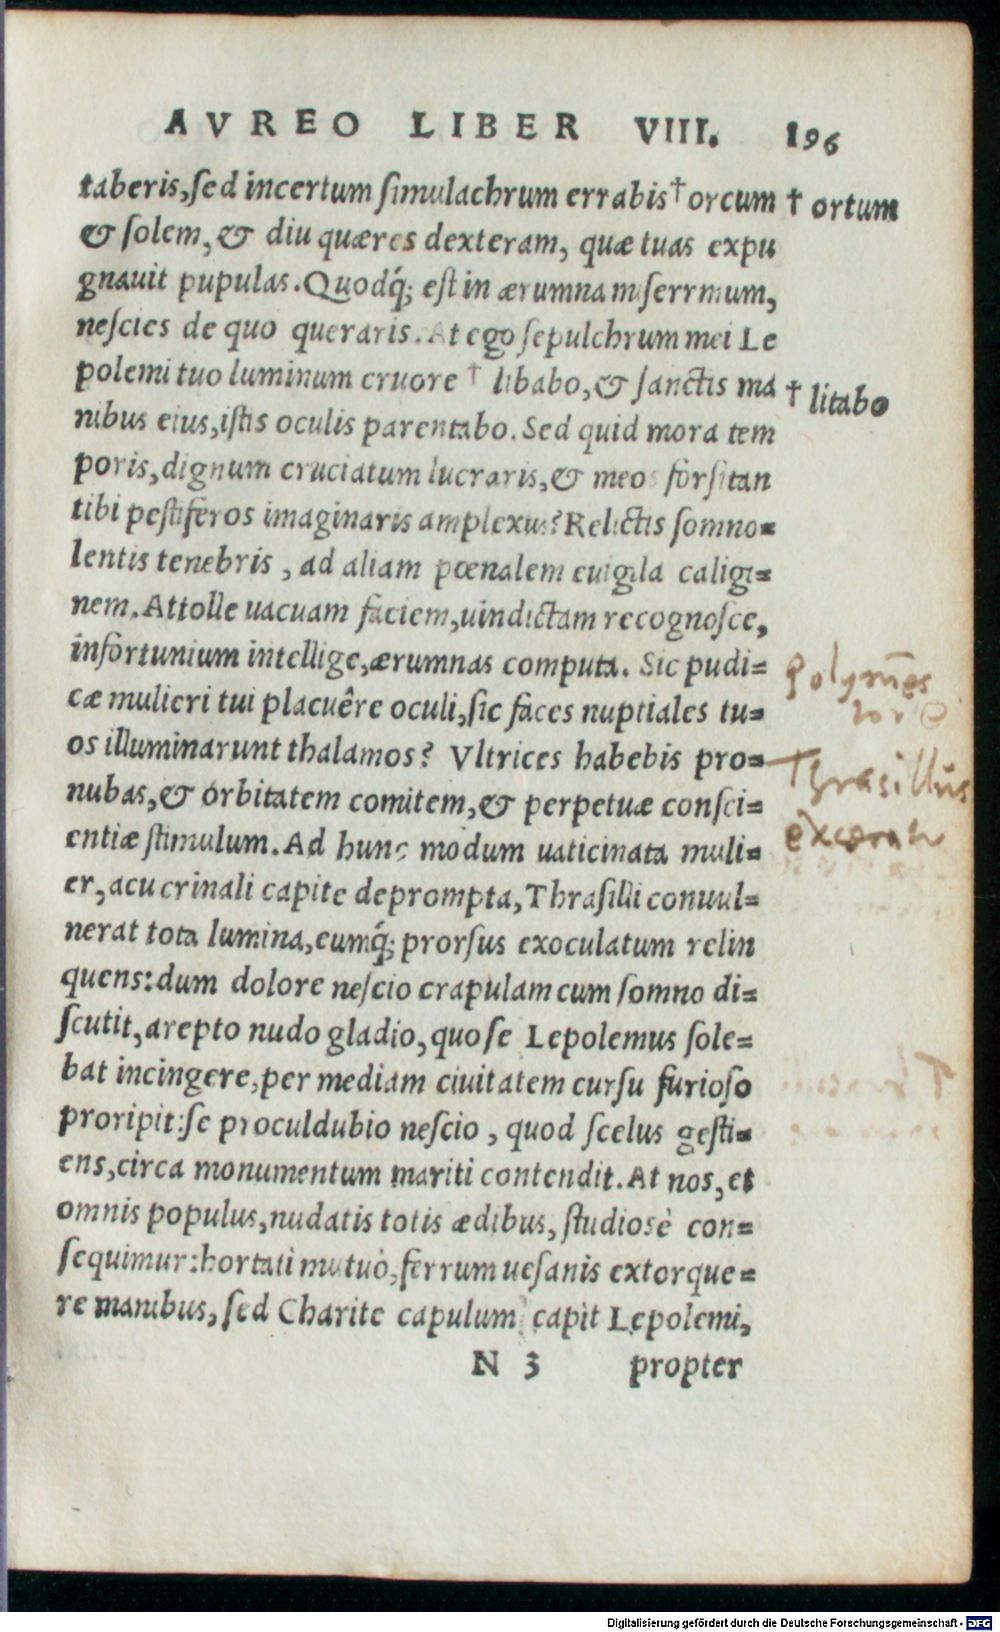 AVREO LIBER VIII. 196
taberis, sed incertum simulachrum errabis † orcum † ortum
& solem, & diu quæres dexteram, quæ tuas expu
gnauit pupulas. Quodq́; est in ærumna miserrmum,
nescies de quo queraris. At ego sepulchrum mei Le
polemi tuo luminum cruore † libabo, & sanctis ma † litabo
nibus eius, istis oculis parentabo. Sed quid mora tem
poris, dignum cruciatum lucraris, & meos forsitan
tibi pestiferos imaginaris amplexus? Relictis somno=
lentis tenebris, ad aliam pœnalem euigila caligi=
nem. Attolle uacuam faciem, uindictam recognosce,
infortunium intellige, ærumnas computa. Sic pudi=
cæ mulieri tui placuêre oculi, sic faces nuptiales tu=
os illuminarunt thalamos? Vltrices habebis pro=
nubas, & orbitatem comitem, & perpetuæ consci=
entiæ stimulum. Ad hunc modum uaticinata muli=
er, acu crinali capite deprompta, Thrasilli conuul=
nerat tota lumina, eumq́; prorsus exoculatum relin
quens: dum dolore nescio crapulam cum somno di=
scutit, arepto nudo gladio, quo se Lepolemus sole=
bat incingere, per mediam ciuitatem cursu furioso
proripit: se proculdubio nescio, quod scelus gesti=
ens, circa monumentum mariti contendit. At nos, et
omnis populus, nudatis totis ædibus, studiosè con=
sequimur: hortati mutuò, ferrum uesanis extorque=
re manibus, sed Charite capulum capit Lepolemi,
N 3 propter
Polym̄es
tor
Thrasillus
Digitalisierung gefördert durch die Deutsche Forschungsgemeinschaft - DFG